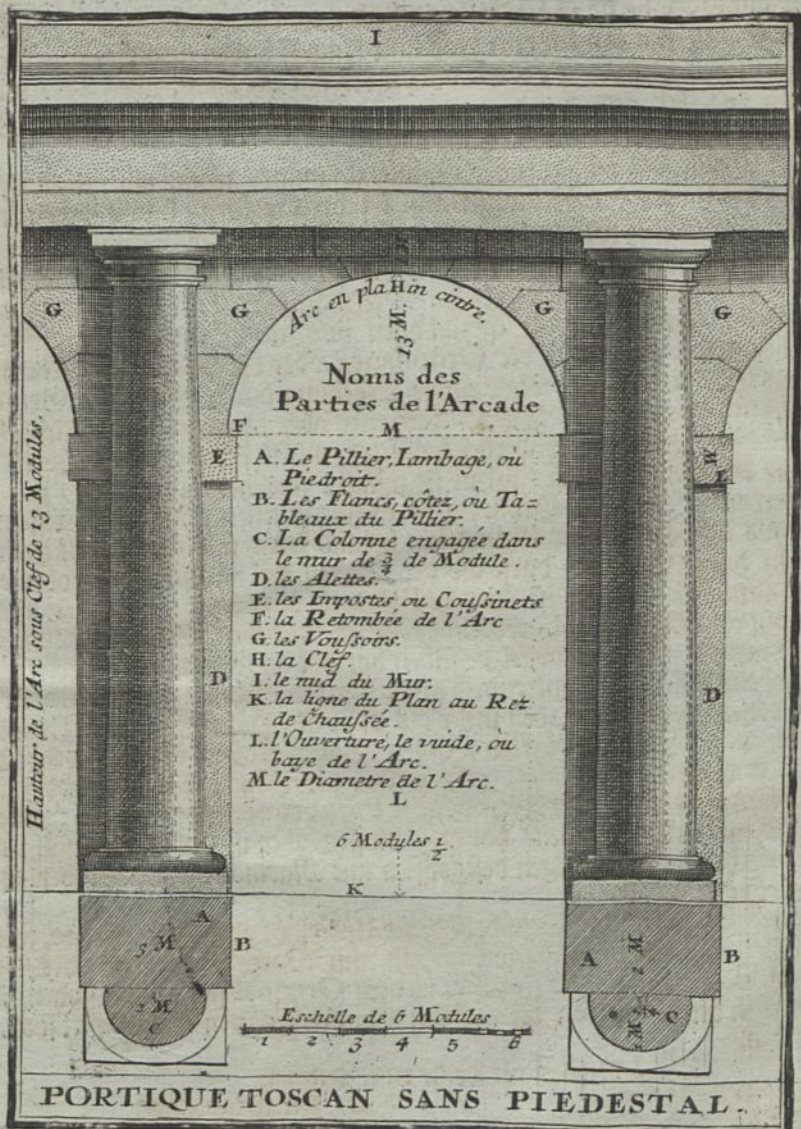 I
Arc en pla Hin cintre.
13 M.
G
G
G
G
Noms des
Parties de l'Arcade
M
F
E
A. Le Pillier, Iambage, ou
Piedroit.
B. Les Flancs, côtez, ou Ta=
bleaux du Pillier.
C. La Colonne engagée dans
le mur de 3/4 de Module.
D. les Alettes.
E. les Impostes ou Coussinets
F. la Retombée de l'Arc
G. les Voussoirs.
H. la Clef.
I. le nud du Mur.
K. la ligne du Plan au Rez
de Chaussée.
L. l'Ouverture, le vuide, ou
baye de l'Arc.
M. le Diametre de l'Arc.
L
Hauteur de l'Arc sous Clef de 13 Modules.
D
D
6 Modules 1/2
K
A
B
3 M
M
C
A
B
2 M
C
Eschelle de 6 Modules
1 2 3 4 5 6
PORTIQUE TOSCAN SANS PIEDESTAL.